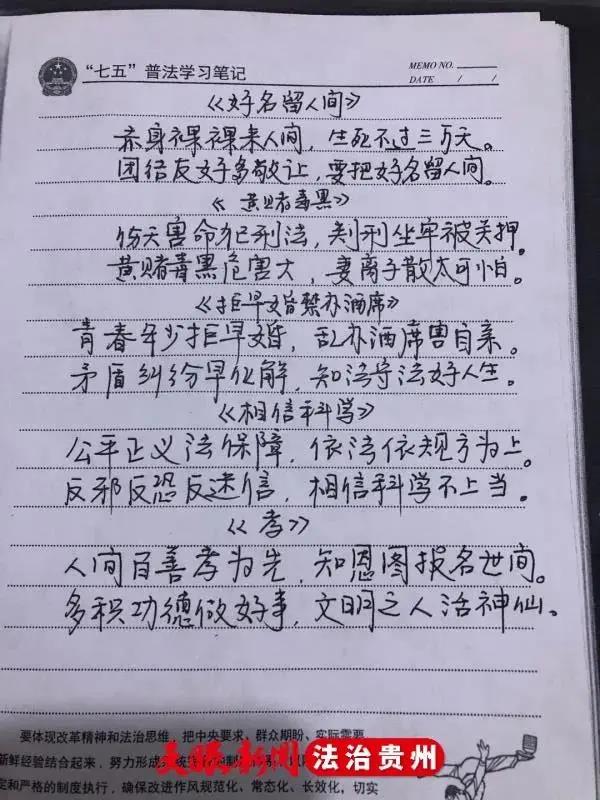 “七五”普法学习笔记
MEMO NO.
DATE / /
《好名留人间》
赤身裸裸来人间，生死不过三万天。
团结友好多敬让，要把好名留人间。
《黄赌毒黑》
伤天害命犯刑法，判刑坐牢被关押。
黄赌毒黑危害大，妻离子散太可怕。
《拒早婚禁办酒席》
青春年少拒早婚，乱办酒席害自亲。
矛盾纠纷早化解，知法守法好人生。
《相信科学》
公平正义法保障，依法依规方为上。
反邪反恐反迷信，相信科学不上当。
《孝》
人间百善孝为先，知恩图报名世间。
多积功德做好事，文明之人活神仙。
要体现改革精神和法治思维，把中央要求、群众期盼、实际需要、
新鲜经验结合起来，努力形成
定和严格的制度执行，确保改进作风规范化、常态化、长效化，切实
天眼新闻 法治贵州